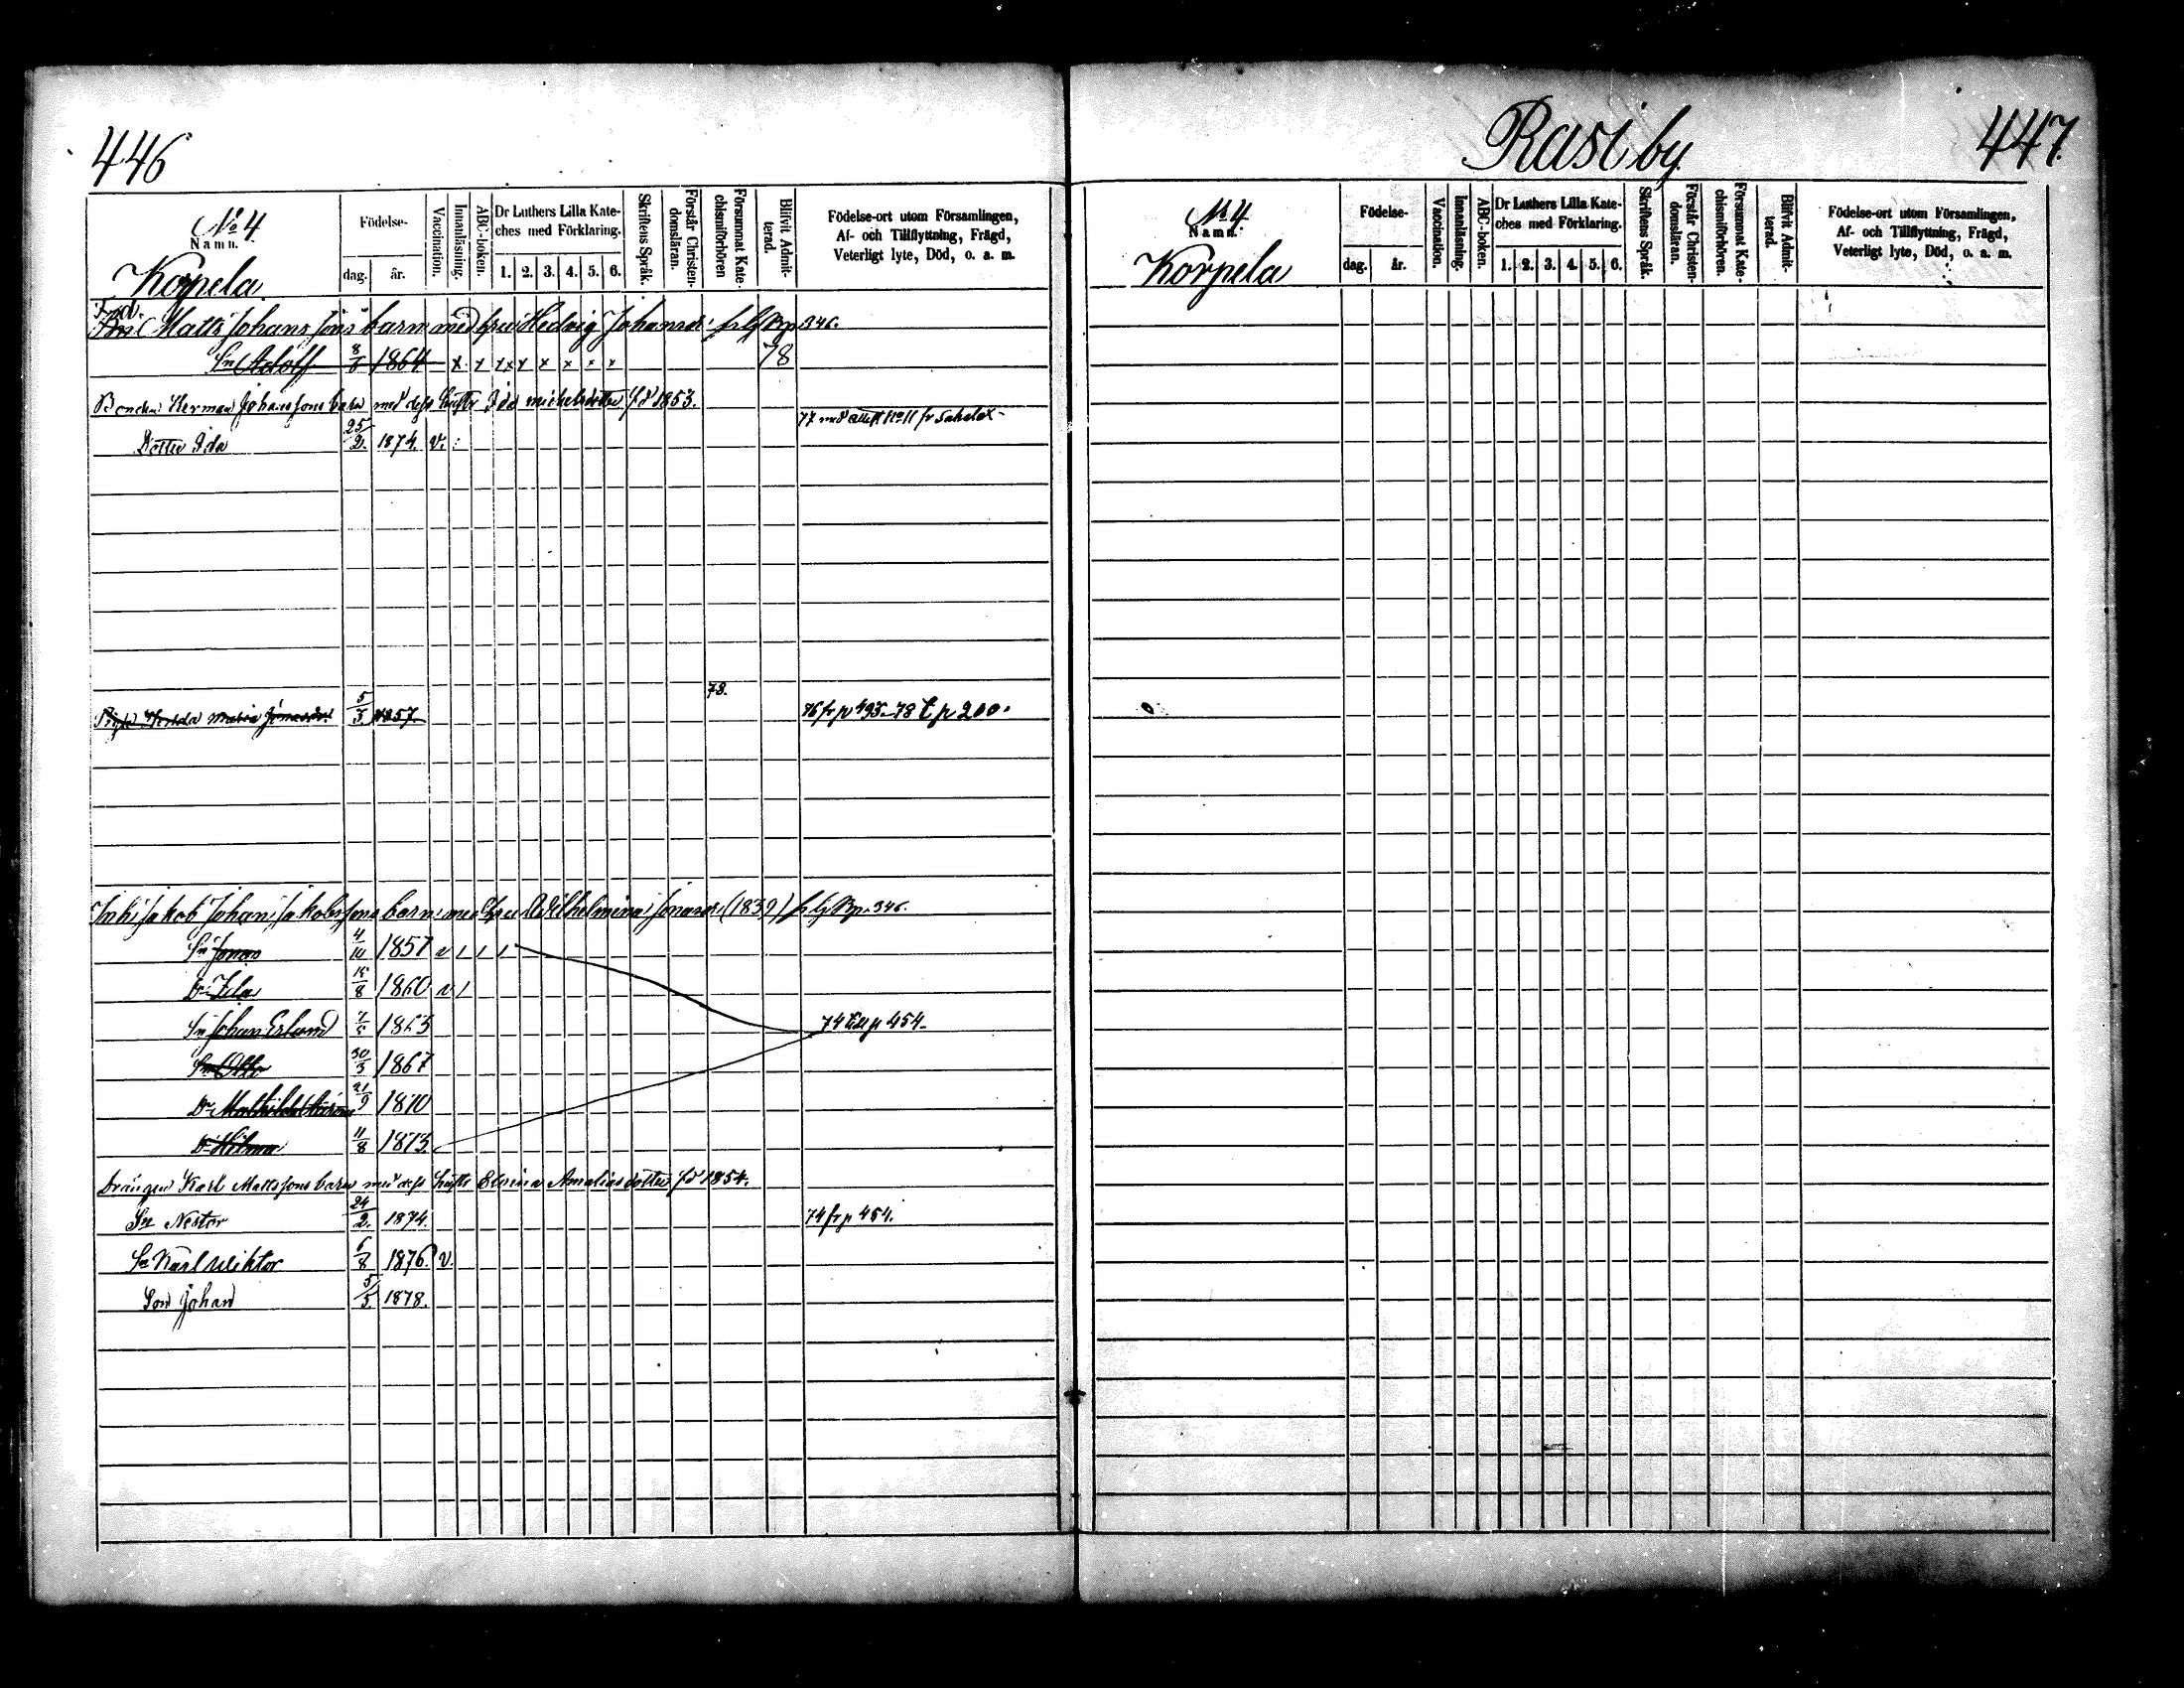 446
No 4
Namn.
Korpela
Födelse-
dag. år.
Vaccination.
Innanläsning.
ABC-boken.
Dr Luthers Lilla Kate-
ches med Förklaring.
1. 2. 3. 4. 5. 6.
Skriftens Språk.
Förstår Christen-
domsläran.
Försummat Kate-
chismiförhören
Blifvit Admit-
terad.
Födelse-ort utom Församlingen,
Af- och Tillflyttning, Frägd,
Veterligt lyte, Död, o. a. m.
Matts Johanssons barn med hru Hedvig Johansdr 346.
Sn Adolf 8/8 1864 x x x x x x x x x 78
Bonden Herman Johanssons barn med dess hustr Ida Michelsdotter fd 1853.
77 med att No 11 fr
Dotter Ida 25/2. 1874. v.
78.
Piga Maria Jonasdr 5/3 1857. 76 fr p 495. 78 t p 200.
Jakob Johan Jakobssons barn med hru Wilhelmina Jonasdr (1839) 346.
Sn Jonas 4/10 1857 v / / /
Dr Ida 15/8 1860 v /
Sn Johan Erland 7/5 1863 74 till p 454.
Sn Otto 30/3 1867
Dr Mathilda 21/9 1870
Dr Hilma 11/8 1873.
Drängen Karl Mattssons barn med dess hustr Elvina Amaliasdotter fd 1854.
Sn Nestor 24/2. 1874. 74 fr p 454.
Sn Karl Wiktor 6/8 1876. v.
Son Johan 5/5. 1878.
Rasi by
447.
No 4.
Namn.
Korpela
Födelse-
dag. år.
Vaccination.
Innanläsning.
ABC-boken.
Dr Luthers Lilla Kate-
ches med Förklaring.
1. 2. 3. 4. 5. 6.
Skriftens Språk.
Förstår Christen-
domsläran.
Försummat Kate-
chismiförhören.
Blifvit Admit-
terad.
Födelse-ort utom Församlingen,
Af- och Tillflyttning, Frägd,
Veterligt lyte, Död, o. a. m.